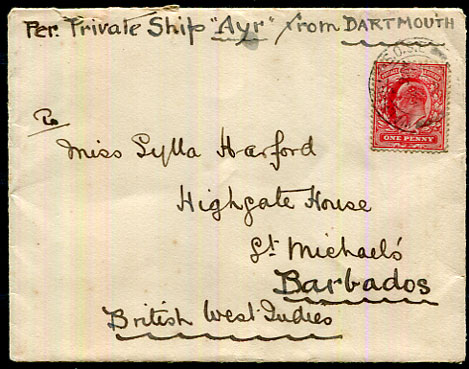 Per. Private Ship "Ayr" from DARTMOUTH
ONE PENNY
To
Miss Sylla Harford
Highgate House
St. Michael's
Barbados
British West Indies